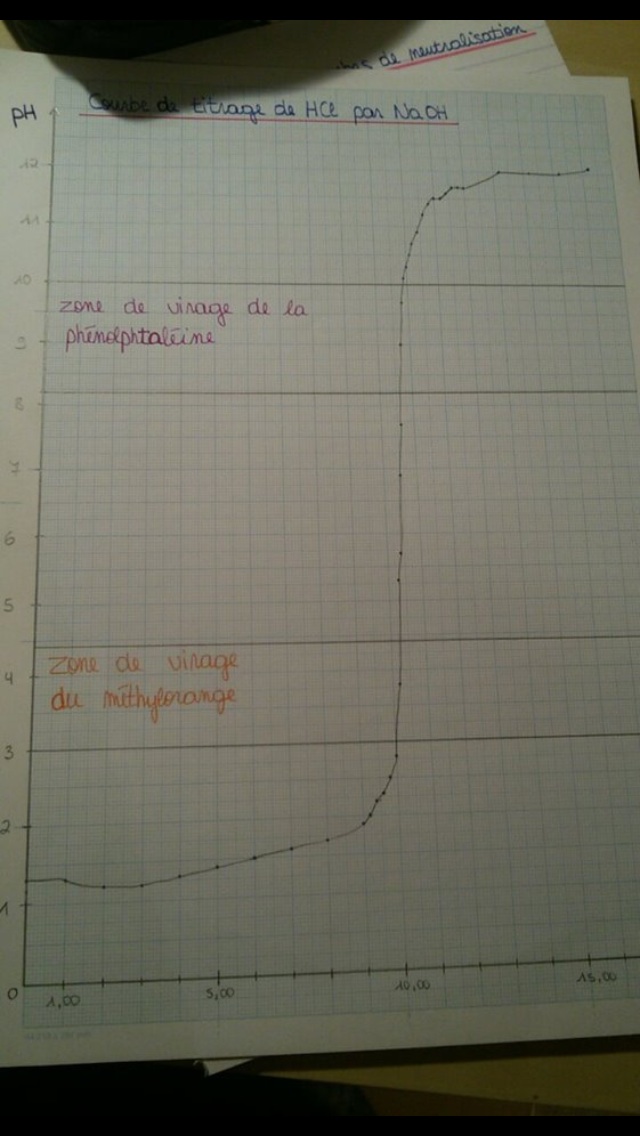 de neutralisation
pH
Courbe de titrage de HCl par NaOH
12
11
10
zone de virage de la
phénolphtaléine
9
8
7
6
5
zone de virage
4
du méthylorange
3
2
1
0
1,00
5,00
10,00
15,00